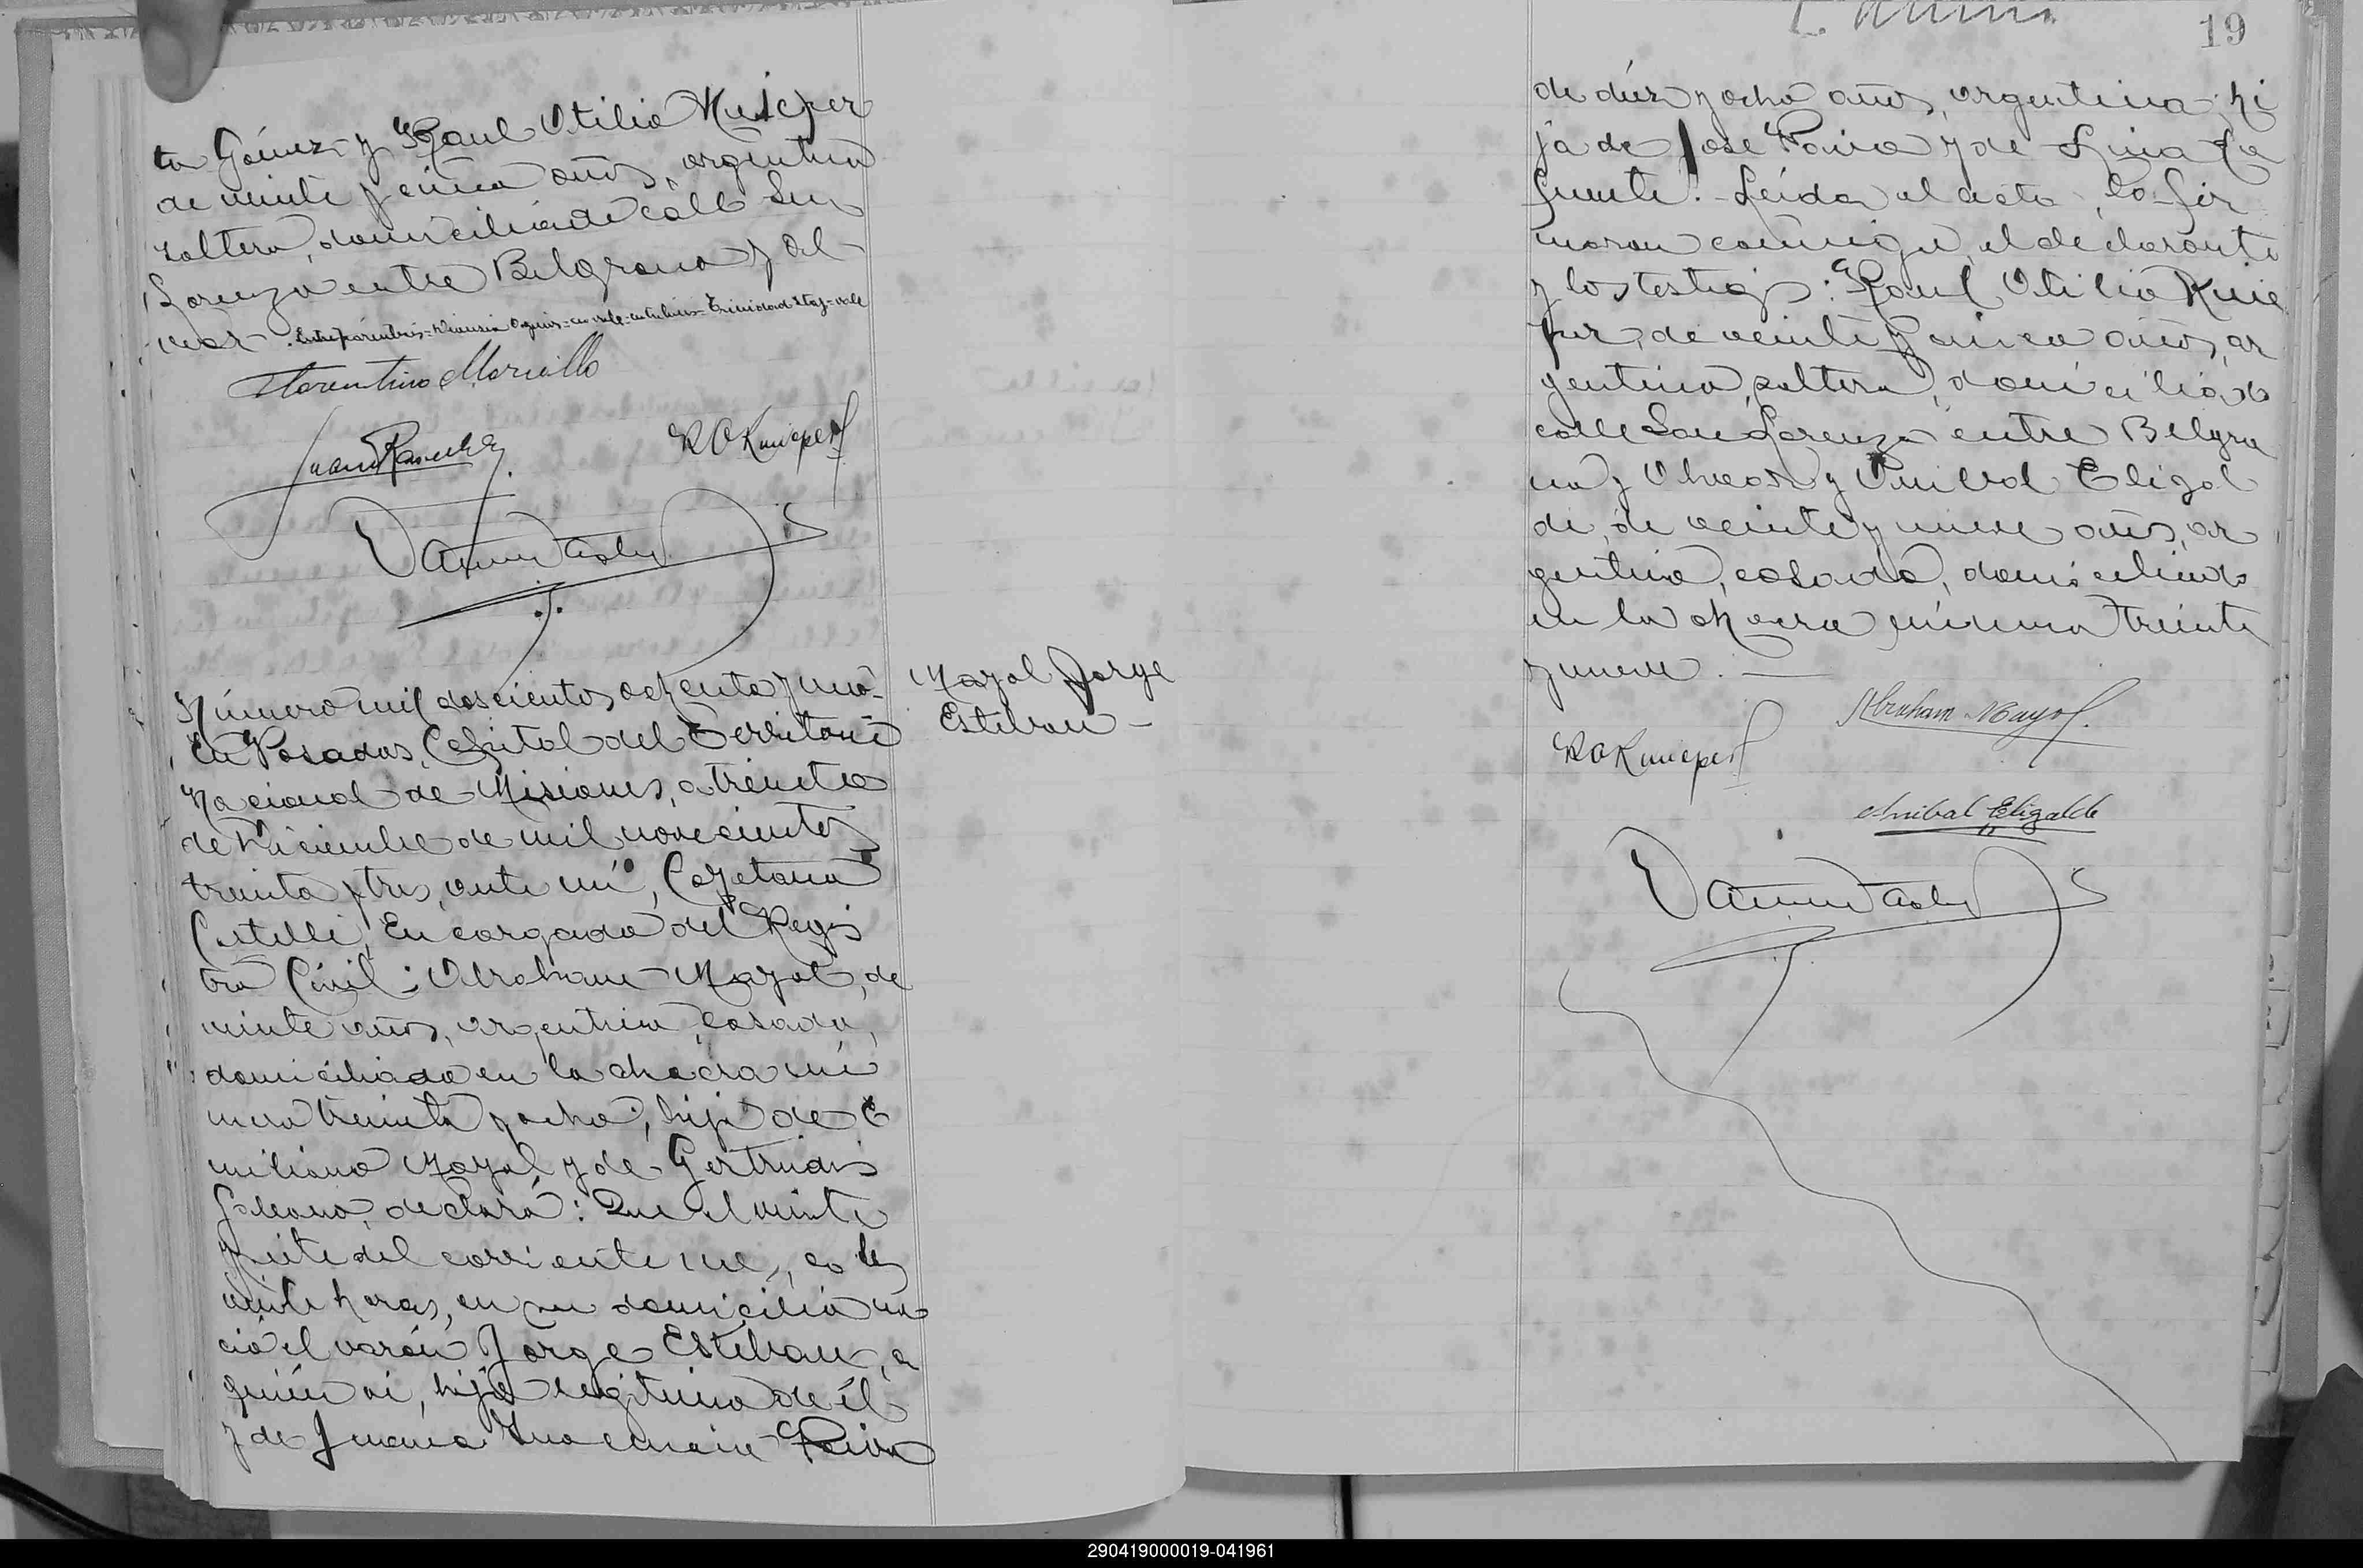 ta Gómez y Raul Otilio Knieper
de veinte y cinco años, argentino
soltero, domiciliado calle San
Lorenzo entre Belgrano y Ol
var-. Entre paréntesis= Dionisia =no vale=entre lineas=Trinidad =vale
Florentino Morinillo
Juan
R O Knieper
Número mil doscientos ochenta y uno-
En Posadas, Capital del Territorio
Nacional de Misiones, a treinta
de Diciembre de mil novecientos
treinta y tres, ante mí, Cayetano
Castelli, Encargado del Regis
tro Civil; Abraham Mayol, de
veinte años, argentino, casado,
domiciliado en la chacra nú
mero treinta y ocho, hijo de E
miliano Mayol y de Gertrudis
Galeano, declaró: Que el veinte
y siete del corriente mes, a las
veinte horas, en su domicilio na
ció el varón Jorge Esteban, a
quién vi, hijo legitimo de él
y de Juana Paiva
Mayol Jorge
Esteban-
19
de diez y ocho años, argentina, hi
ja de José Paiva y de Lina La
fuente.- Leída el acta, la fir
maron conmigo, el declarante
y los testigos: Raul Otilio Knie
per, de veinte y cinco años, ar
gentino, soltero, domiciliado
calle San Lorenzo entre Belgra
no y Olvear y Anibal Eligal
de, de veinte y nueve años, ar
gentino, casado, domiciliado
en la chacra número treinta
y nueve.-
Abraham Mayol.
R O Knieper
Anibal Eligalde
290419000019-041961